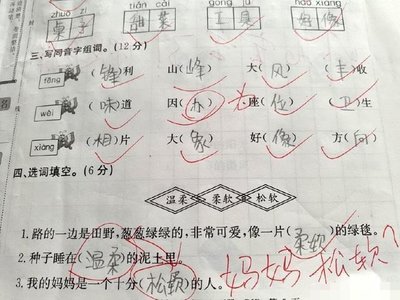 zhuō zi tián cài gōng jù hǎo xiàng
桌子 甜菜 工具 好像
三、写同音字组词。(12分)
fēng (锋)利 山(峰) 大(风) (丰)收
wèi (味)道 因( ) 座(位) (卫)生
xiàng (相)片 大(象) 好(像) 方(向)
四、选词填空。(6分)
温柔 柔软 松软
1.路的一边是田野,葱葱绿绿的,非常可爱,像一片(柔软)的绿毯。
2.种子睡在(温柔)的泥土里。
3.我的妈妈是一个十分(松软)的人。 妈妈松软?